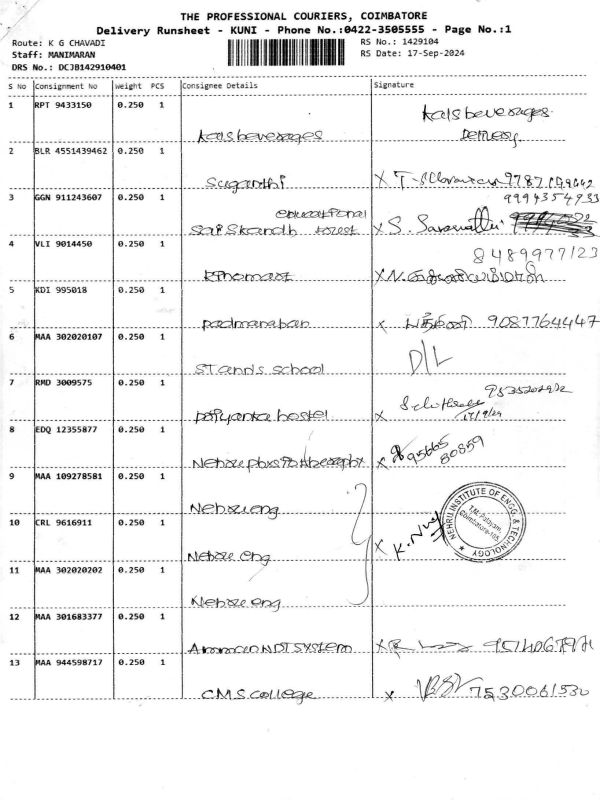 THE PROFESSIONAL COURIERS, COIMBATORE
Delivery Runsheet - KUNI - Phone No.:0422-3505555 - Page No.:1
Route: K G CHAVADI RS No.: 1429104
Staff: MANIMARAN RS Date: 17-Sep-2024
DRS No.: DCJB142910401
S No Consignment No Weight PCS Consignee Details Signature
1 RPT 9433150 0.250 1
kals beverages kals beverages
2 BLR 4551439462 0.250 1
Suganthi x T.
3 GGN 911243607 0.250 1 9994354933
educational
Sai Skandh forest x S.
4 VLI 9014450 0.250 1 8489977123
x N.
5 KDI 995018 0.250 1
padmanaban x பத்மினி 9087764447
6 MAA 302020107 0.250 1 D/L
ST anns school
7 RMD 3009575 0.250 1
priyanka hostel x 17/9/24
8 EDQ 12355877 0.250 1 95665
80859
Nehru x
9 MAA 109278581 0.250 1
Nehru eng
10 CRL 9616911 0.250 1
Nehru eng x K.
NEHRU INSTITUTE OF ENGG. & TECHNOLOGY
T.M. Palayam,
Coimbatore-105.
11 MAA 302020202 0.250 1
Nehru eng
12 MAA 301683377 0.250 1
Amman NDT System x
13 MAA 944598717 0.250 1
CMS college x 7530061530